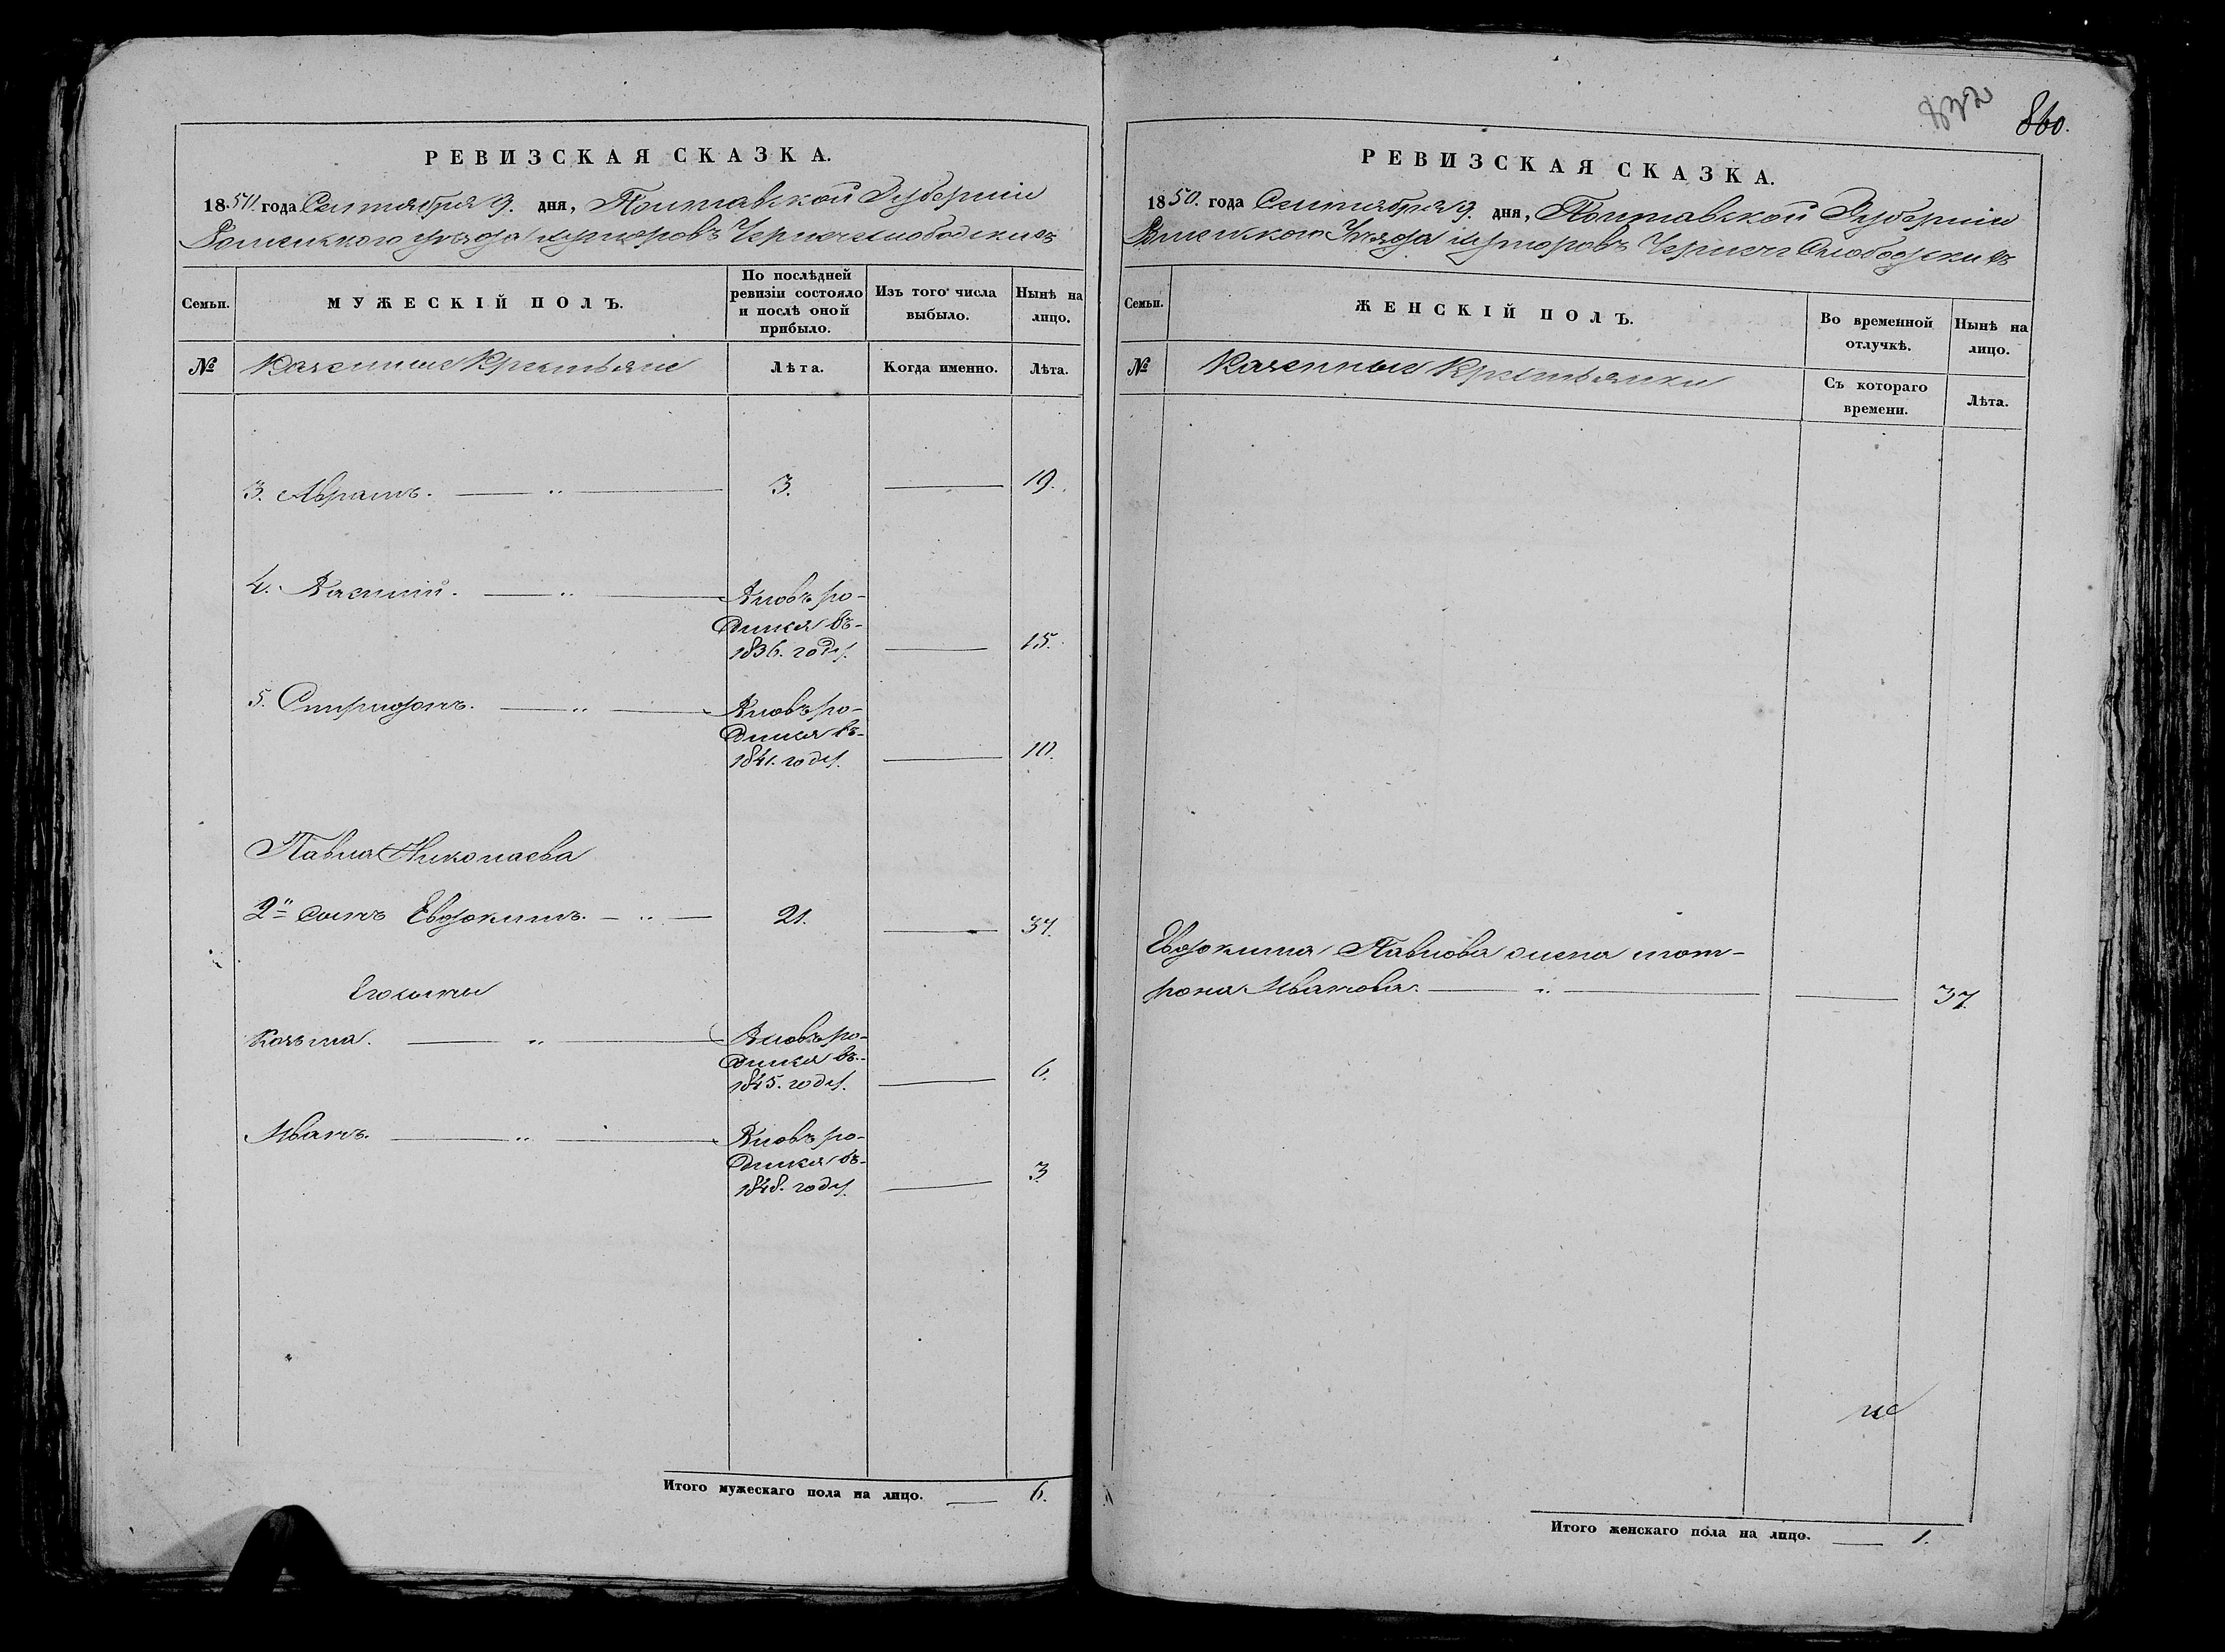 РЕВИЗСКАЯ СКАЗКА.
1850. года Сентября 9. дня, Полтавской Губернии
Роменского уезда хуторовъ Чернечеслободскихъ
Семьи.
МУЖЕСКІЙ ПОЛЪ.
По послѣдней ревизіи состояло и послѣ оной прибыло.
Изъ того числа выбыло.
Нынѣ на лицо.
№
Казенные Крестьяне
Лѣта.
Когда именно.
Лѣта.
3. Аврамъ. — „ — 3. — 19.
4. Василий. — „ — Вновь ро-
дился въ-
1836. году. — 15.
5. Спиридонъ. — „ — Вновь ро-
дился въ-
1841. году. — 10.
Павла Николаева
2й сынъ Евдокимъ. — „ — 21. — 37.
Его сыны
Козьма. — „ — Вновь ро-
дился въ-
1845. году. — 6.
Иванъ. — „ — Вновь ро-
дился въ-
1848. году. — 3
Итого мужескаго пола на лицо. — 6.
832
860.
РЕВИЗСКАЯ СКАЗКА.
1850. года Сентября 9. дня, Полтавской Губернии
Роменского Уезда хуторовъ Чернече Слободскихъ
Семьи.
ЖЕНСКІЙ ПОЛЪ.
Во временной отлучкѣ.
Нынѣ на лицо.
№
Казенные Крестьянки
Съ котораго времени.
Лѣта.
Евдокима Павлова жена мот-
рона Иванова. — „ — — 37.
Итого женскаго пола на лицо. — 1.